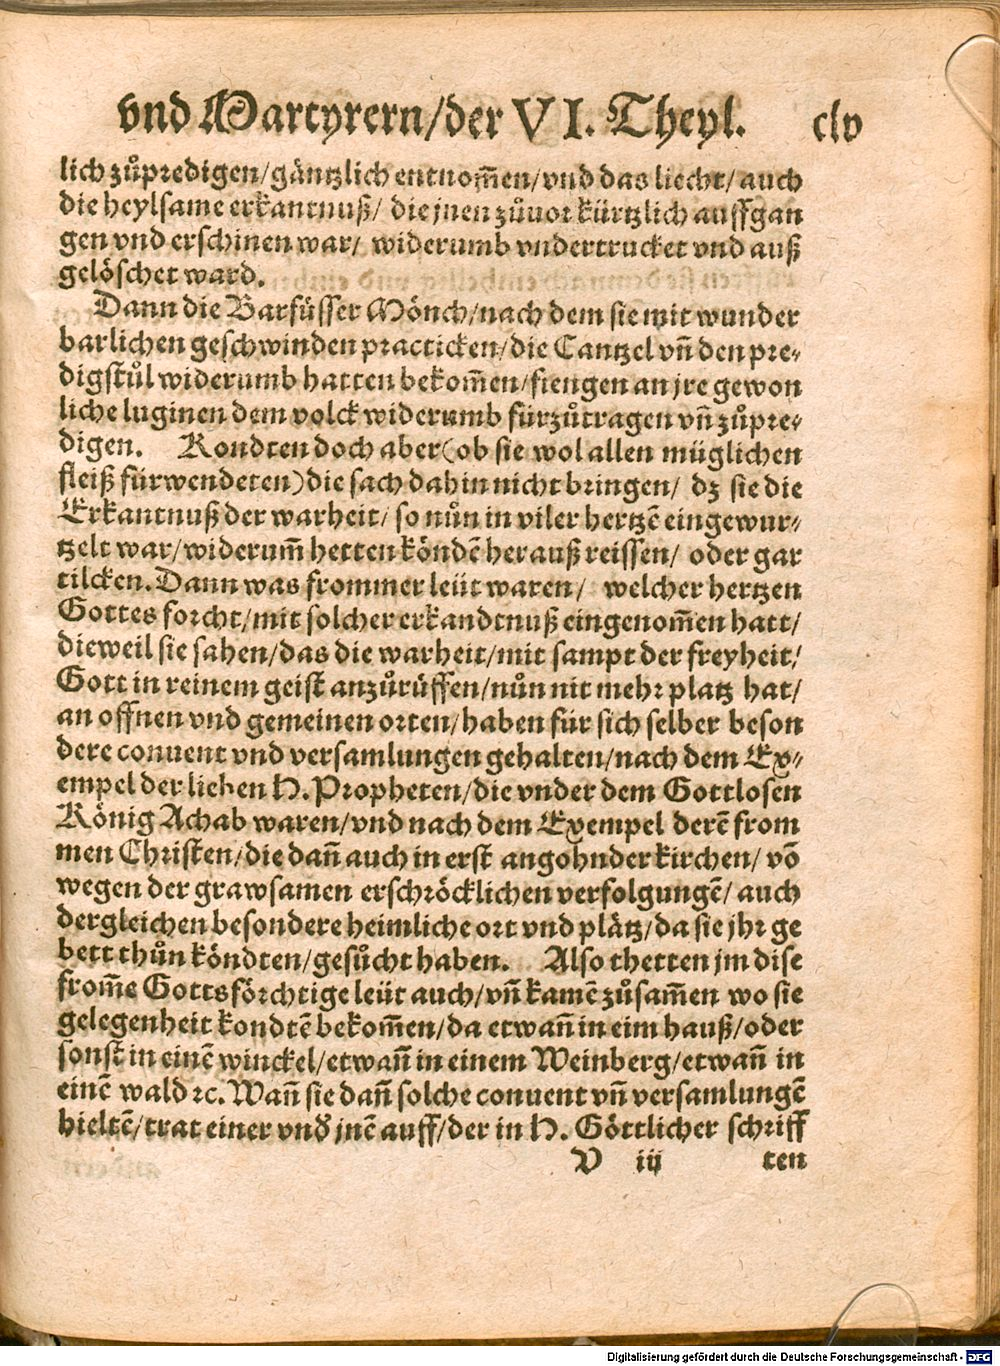 vnd Martyrern/der VI. Theyl. clv
lich zůpredigen/gäntzlich entnom̃en/vnd das liecht/auch
die heylsame erkantnuß/ die jnen zůuor kürtzlich auffgan
gen vnd erschinen war/ widerumb vndertrucket vnd auß
gelöschet ward.
Dann die Barfüsser Mönch/nach dem sie mit wunder
barlichen geschwinden practicken/die Cantzel vñ den pre-
digstůl widerumb hatten bekom̃en/fiengen an jre gewon
liche luginen dem volck widerumb fürzůtragen vñ zůpre-
digen. Kondten doch aber(ob sie wol allen müglichen
fleiß fürwendeten)die sach dahin nicht bringen/ dz sie die
Erkantnuß der warheit/ so nůn in viler hertzẽ eingewur-
tzelt war/widerum̃ hetten köndẽ herauß reissen/ oder gar
tilcken. Dann was frommer leüt waren/ welcher hertzen
Gottes forcht/mit solcher erkandtnuß eingenom̃en hatt/
dieweil sie sahen/das die warheit/mit sampt der freyheit/
Gott in reinem geist anzůrüffen/nůn nit mehr platz hat/
an offnen vnd gemeinen orten/haben für sich selber beson
dere conuent vnd versamlungen gehalten/nach dem Ex-
empel der lieben H. Propheten/die vnder dem Gottlosen
König Achab waren/vnd nach dem Exempel derẽ from
men Christen/die dañ auch in erst angohnder kirchen/ võ
wegen der grawsamen erschröcklichen verfolgungẽ/ auch
dergleichen besondere heimliche ort vnd plätz/da sie jhr ge
bett thůn köndten/gesůcht haben. Also thetten jm dise
from̃e Gottsförchtige leüt auch/vñ kamẽ zůsam̃en wo sie
gelegenheit kondtẽ bekom̃en/da etwañ in eim hauß/oder
sonst in einẽ winckel/etwañ in einem Weinberg/etwañ in
einẽ wald ꝛc. Wañ sie dañ solche conuent vñ versamlungẽ
hieltẽ/trat einer vnď jnẽ auff/der in H. Göttlicher schriff
V iij ten
Digitalisierung gefördert durch die Deutsche Forschungsgemeinschaft - DFG